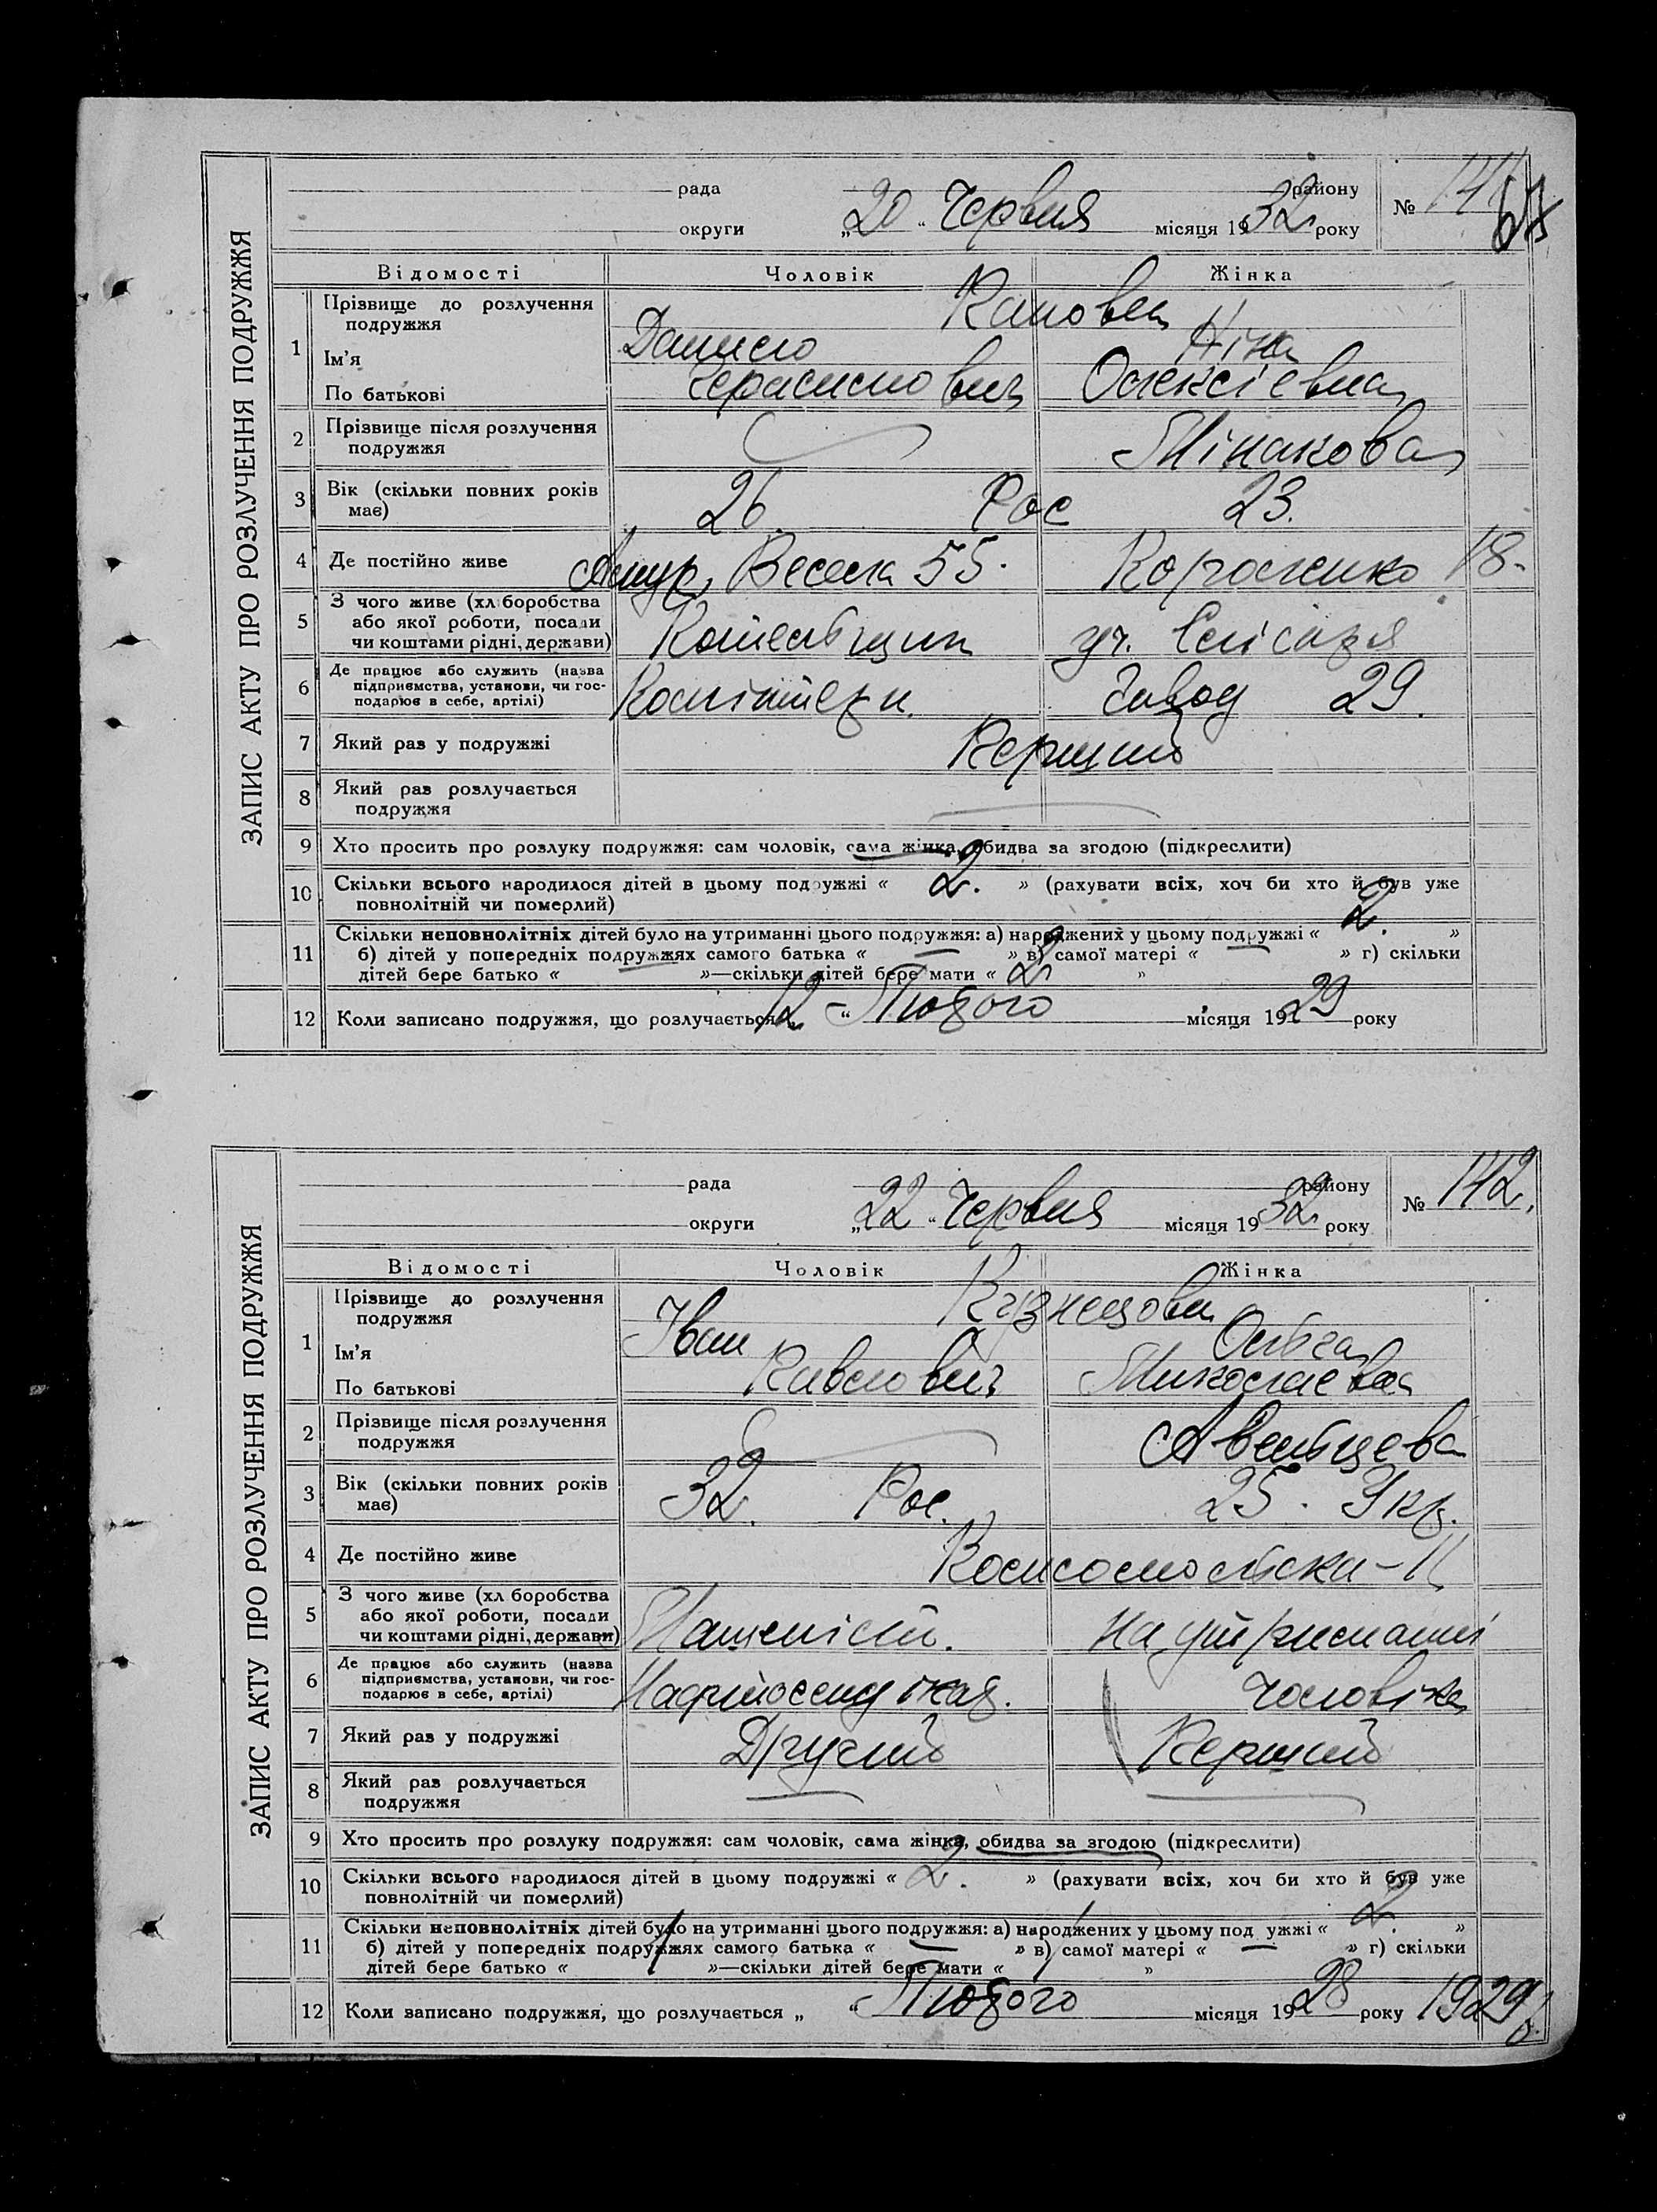 ЗАПИС АКТУ ПРО РОЗЛУЧЕННЯ ПОДРУЖЖЯ
рада району № 141
округи „20“ Червня місяця 1932 року
Відомості Чоловік Жінка
1 Прізвище до розлучення подружжя
Ім'я Данило Ніна
По батькові Герасимович Олексіевна
2 Прізвище після розлучення подружжя Мінакова
3 Вік (скільки повних років має) 26. Рос 23.
4 Де постійно живе Амур, Весела 55. 18.
5 З чого живе (хліборобства або якої роботи, посади чи коштами рідні, держави) уч. Слісаря
6 Де працює або служить (назва підприємства, установи, чи господарює в себе, артілі) Завод 29.
7 Який раз у подружжі Перший
8 Який раз розлучається подружжя
9 Хто просить про розлуку подружжя: сам чоловік, сама жінка, обидва за згодою (підкреслити)
10 Скільки всього народилося дітей в цьому подружжі « 2. » (рахувати всіх, хоч би хто й був уже
повнолітній чи померлий)
11 Скільки неповнолітніх дітей було на утриманні цього подружжя: а) народжених у цьому подружжі « 2. »
б) дітей у попередніх подружжях самого батька « — » в) самої матері « — » г) скільки
дітей бере батько « — »—скільки дітей бере мати « 2 »
12 Коли записано подружжя, що розлучається „12“ Лютого місяця 1929 року
ЗАПИС АКТУ ПРО РОЗЛУЧЕННЯ ПОДРУЖЖЯ
рада району № 142.
округи „22“ Червня місяця 1932 року
Відомості Чоловік Жінка
1 Прізвище до розлучення подружжя Кузнецови
Ім'я Іван Ольга
По батькові Павлович Миколаевна
2 Прізвище після розлучення подружжя
3 Вік (скільки повних років має) 32. Рос. 25. Укр.
4 Де постійно живе Комсомольска-11
5 З чого живе (хліборобства або якої роботи, посади чи коштами рідні, держави) Машиніст. На утриманні
6 Де працює або служить (назва підприємства, установи, чи господарює в себе, артілі) чоловіка
7 Який раз у подружжі Другий Перший
8 Який раз розлучається подружжя
9 Хто просить про розлуку подружжя: сам чоловік, сама жінка, обидва за згодою (підкреслити)
10 Скільки всього народилося дітей в цьому подружжі « 2. » (рахувати всіх, хоч би хто й був уже
повнолітній чи померлий)
11 Скільки неповнолітніх дітей було на утриманні цього подружжя: а) народжених у цьому подружжі « 2. »
б) дітей у попередніх подружжях самого батька « — » в) самої матері « — » г) скільки
дітей бере батько « 1 »—скільки дітей бере мати « 1 »
12 Коли записано подружжя, що розлучається „ “ Лютого місяця 1928 року 1929 р.